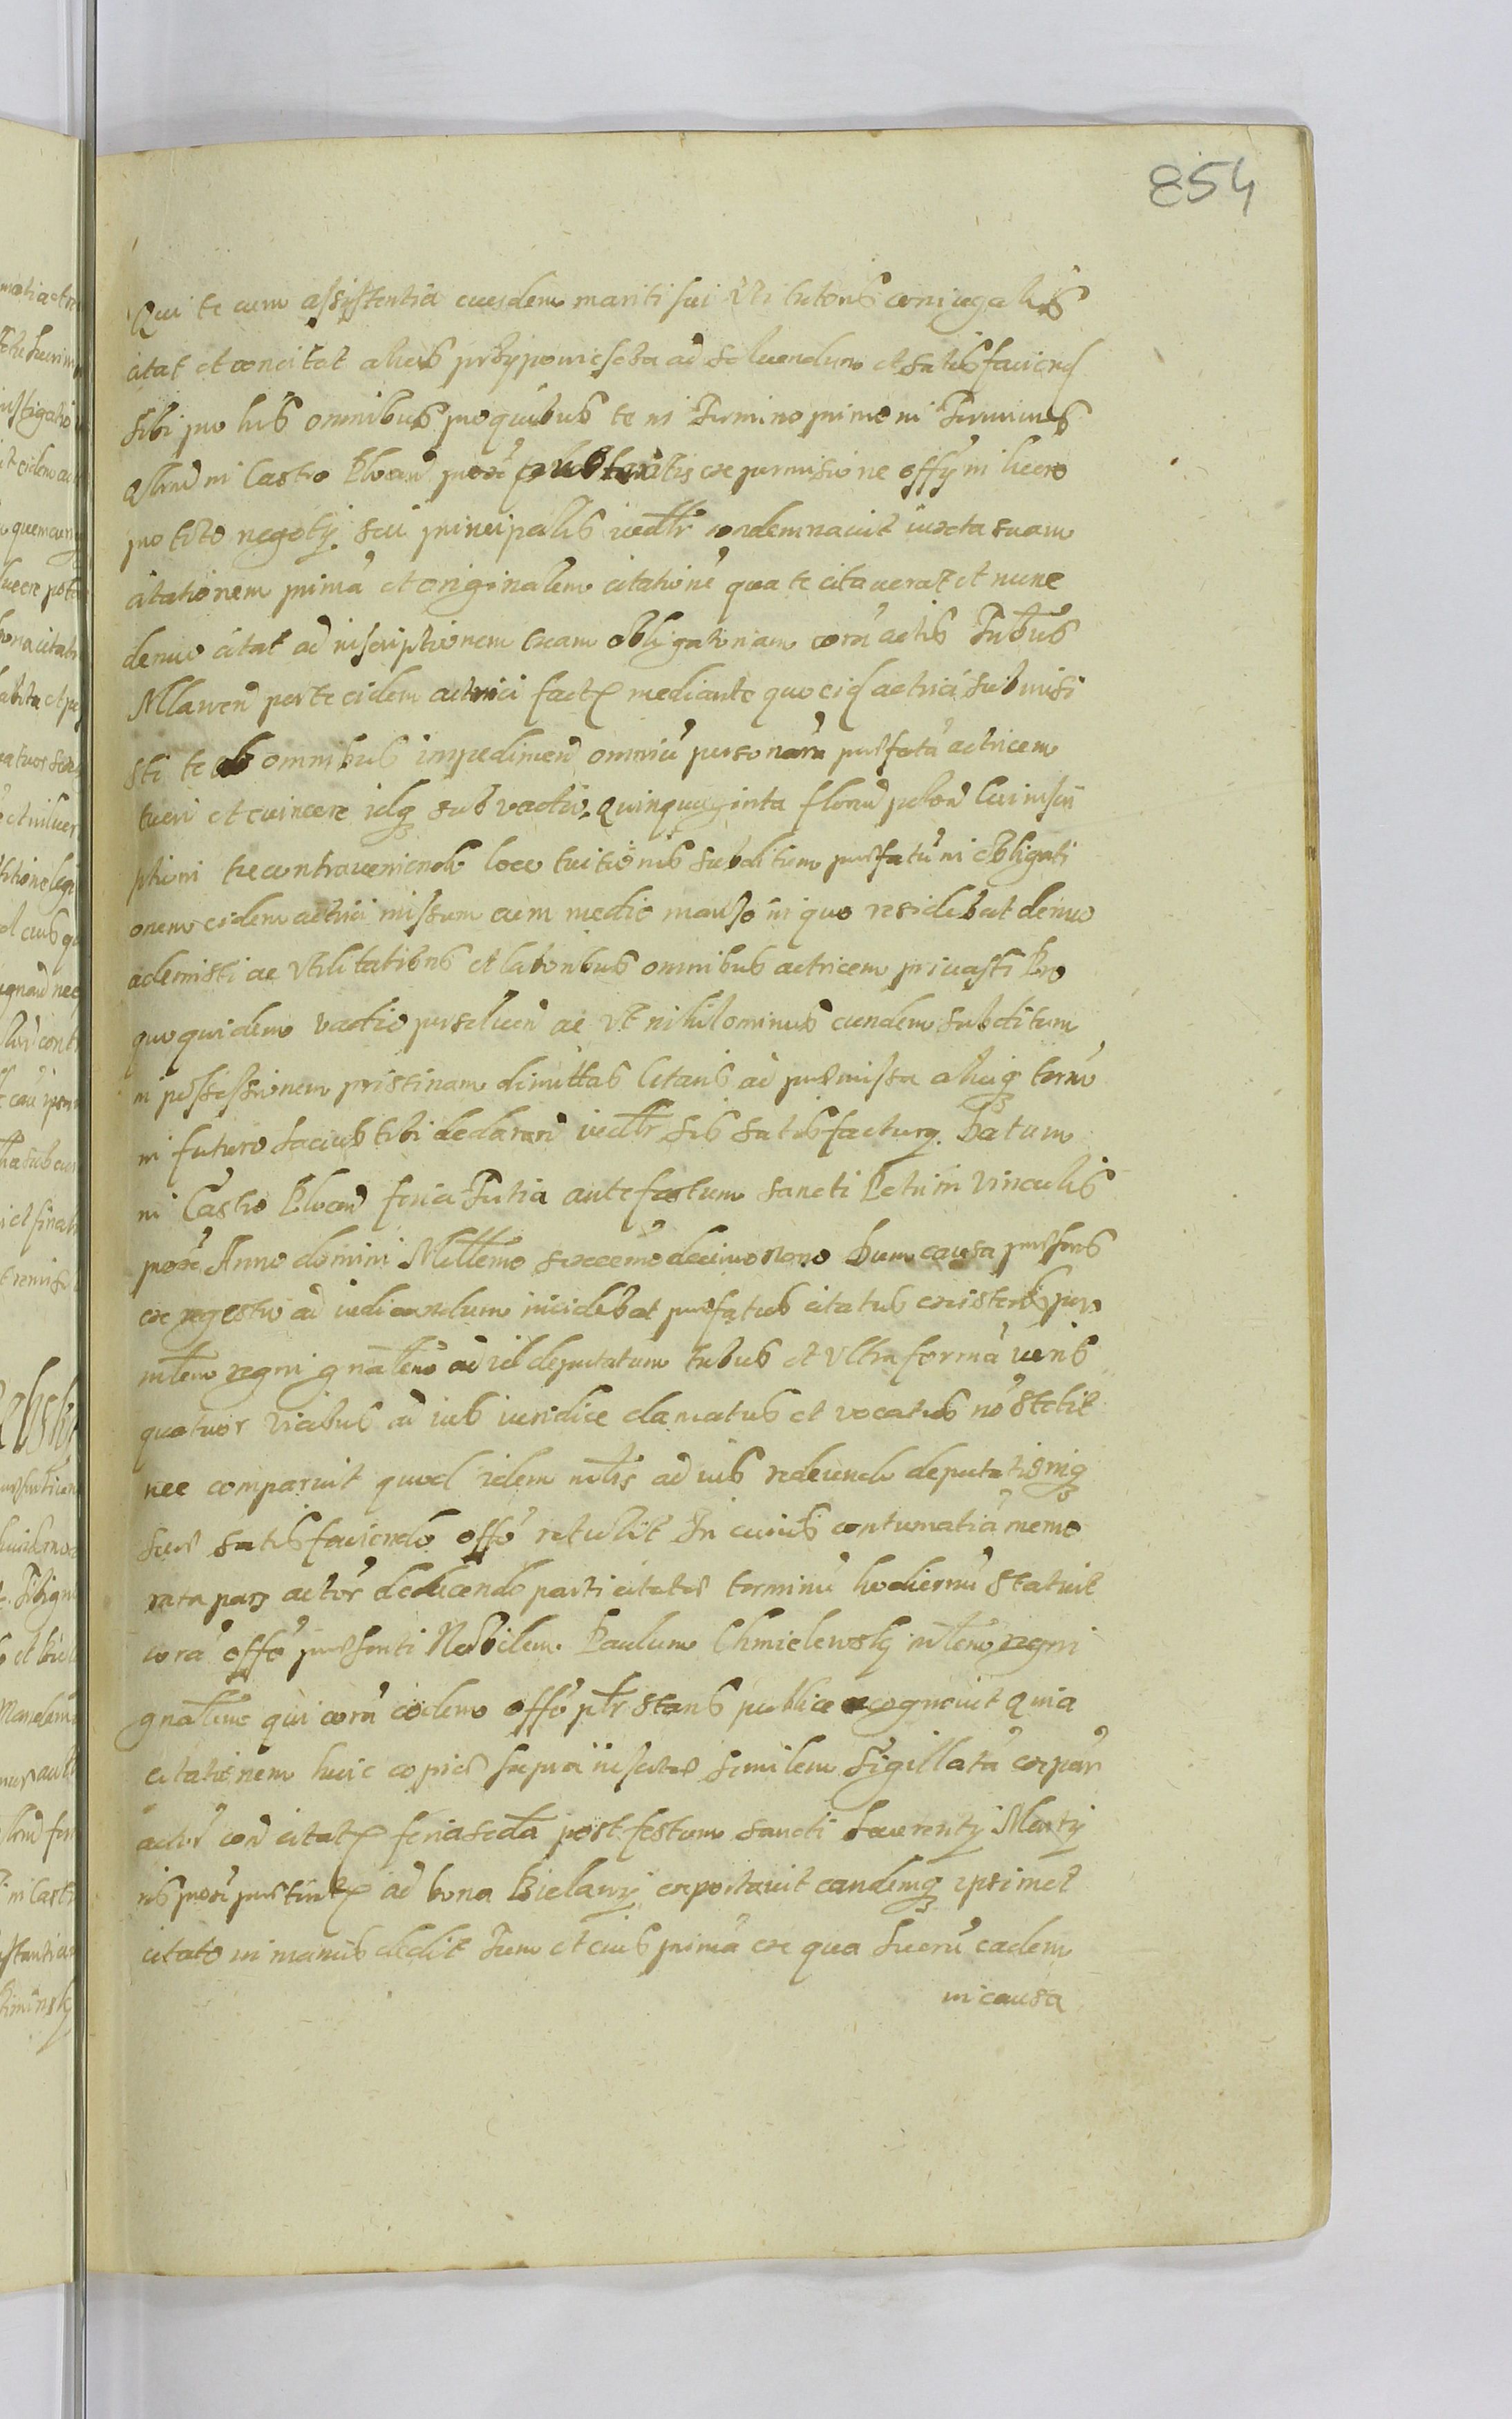 854
Qui te cum assistentia eiusdem mariti sui Vti tutoris coniugalis
citat et concitat alias przypowiescza ad soluendum et satisfaciend
sibi pro his omnibus pro quibus te in Termino primo in Terminis
in Castro Plocen proxe ex permissione offy in lucro
pro toto negoty sui principalis iudlr condemnauit iuxta suam
citationem primã et originalem citationẽ qua te citauerat et nunc
denuo citat ad inscriptionem tuam obligatoriam corã actis
Mlauen per te eidem actrici mediante quo eid actrici submisi
sti te ab omnibus impedimen omniũ personarũ praefatã actricem
tueri et euincere idq sub vadio Quinquaginta floren polon Cui inscri
ptioni te contraueniendo loco tuitionis subditum praefatũ in obligati
onem eidem actrici missum cum medio manso in quo residebat denuo
ademisti ac Vtilitatibus et laboribus omnibus actricem priuasti Pro
quo quidem vadio persoluen ac Vt nihilominus eundem subditum
in possessionem pristinam dimittas Citaris ad praemissa aliaq termo
in futuro lacius tibi declaran iudlr sis satisfacturq. Datum
in Castro Plocen feria Tertia ante festum Sancti Petri in Vinculis
proxe Anno domini Millemo sexcemo decimo Nono Dum causa praesens
ex regestro ad iudicandum incidebat praefatus citatus existens per
mlem regni gnalem ad id deputatum tribus et Vltra formã iuris
quatuor vicibus ad ius iuridice clamatus et vocatus nõ stetit
nec comparuit quod idem mlis ad ius redeundo deputationiq
suae satisfaciendo offo retulit In cuius contumatiã memo
rata pars actor deducendo parti citatae terminũ hodiernũ statuit
corã offo praesenti Nobilem Paulum Chmielewsky mlem regni
gnalem qui corã eodem offo plr stans publice recognouit Quia
citationem huic copiae supra insertae similem Sigillatã ex par
actor con citat feria scda post festum Sancti Laurenty Marty
ris proxe ad bona Bielawy exportauit eandemq ipsimet
citato in manus dedit Tum et eius primã ex qua lucrũ eadem
in causa